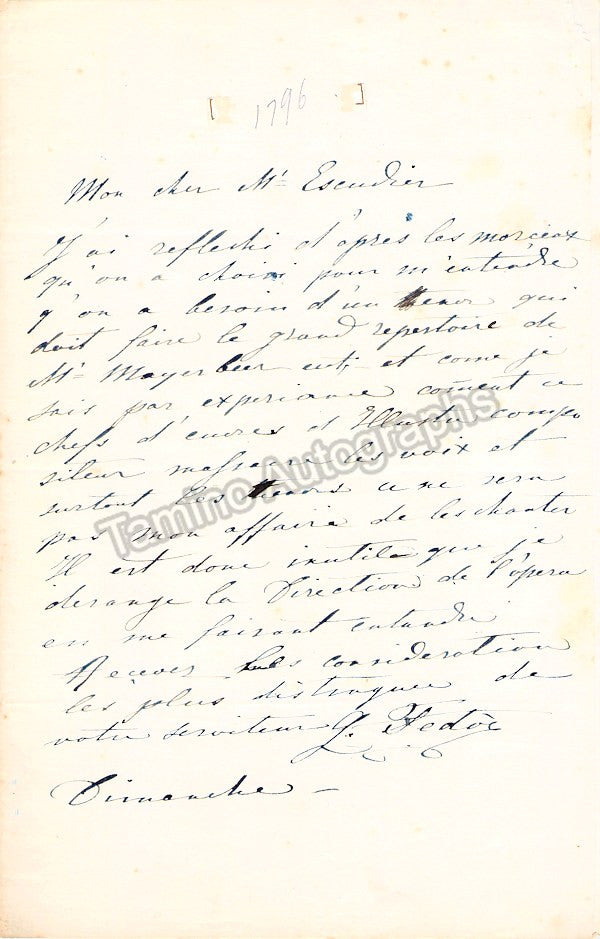 [ 1796 ]
Mon cher Mr Escudier
J'ai reflechi d'après les morceaux
qu'on a choisi pour m'entendre
q'on a besoin d'un tenor qui
doit faire le grand repertoire de
Mr Mayerbeer et come je
sais par experiance coment ce
chefs d'euvres d' Illustre compo
siteur massacre les voix et
surtout les tenors ce ne sera
pas mon affaire de les chanter
Il est donc inutile que je
derange la Direction de l'opera
en me faisant entendre
Recever les consideration
les plus distinguee de
votre serviteur G. Fedor
Dimanche –
Tamino Autographs